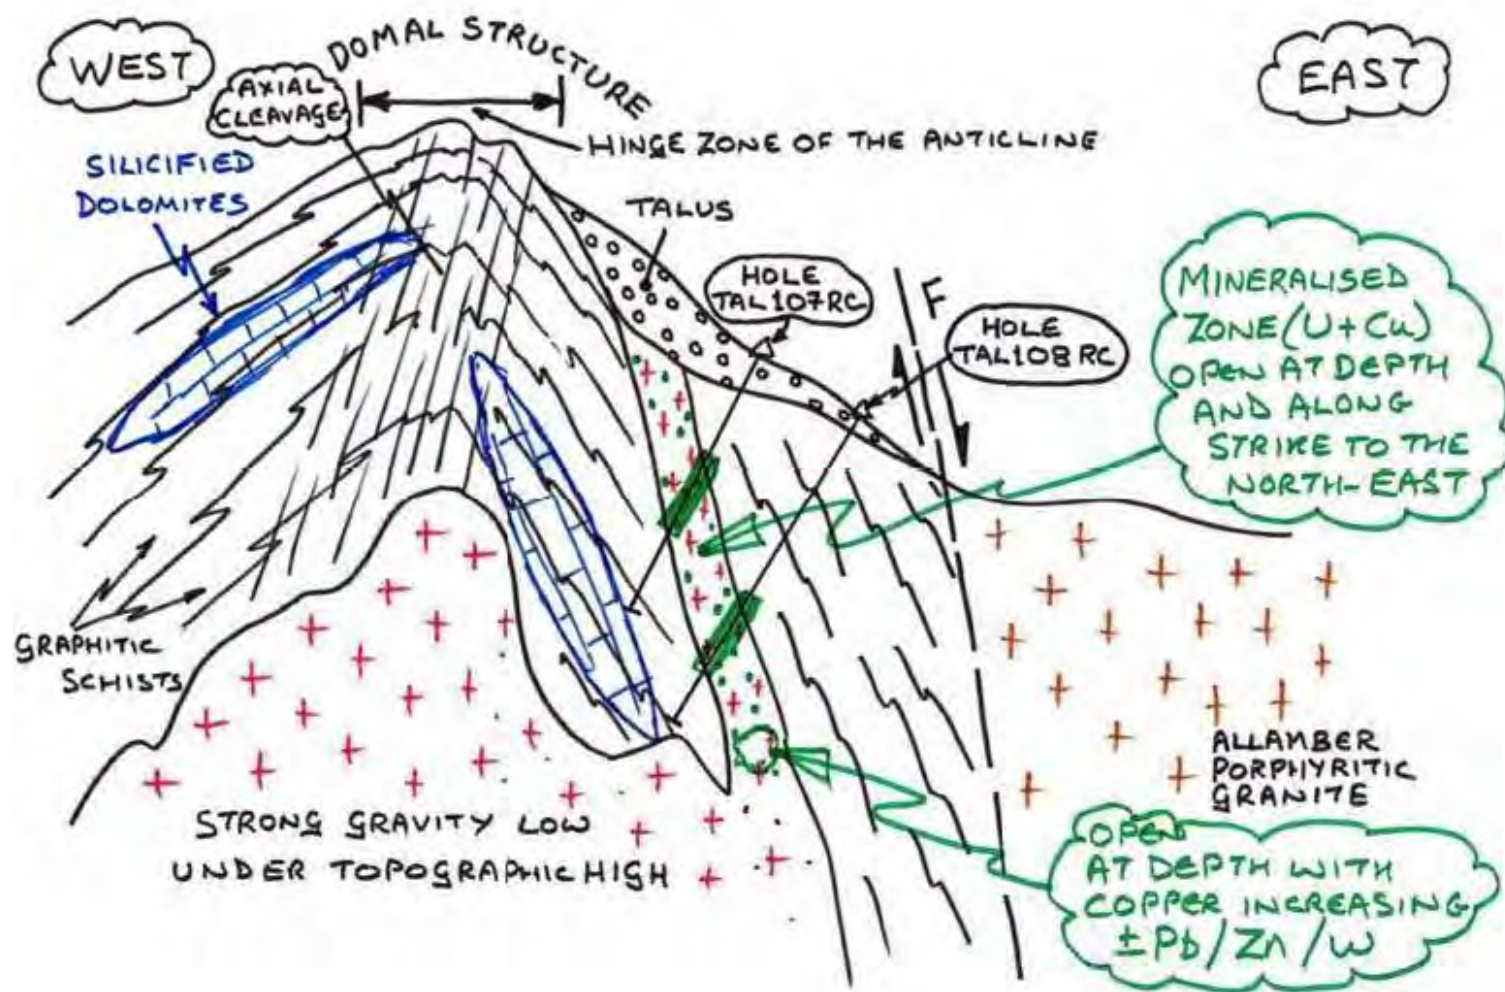 WEST
DOMAL STRUCTURE
EAST
AXIAL
CLEAVAGE
HINGE ZONE OF THE ANTICLINE
SILICIFIED
DOLOMITES
TALUS
HOLE
TAL107RC
F
HOLE
TAL108RC
MINERALISED
ZONE (U+Cu)
OPEN AT DEPTH
AND ALONG
STRIKE TO THE
NORTH-EAST
GRAPHITIC
SCHISTS
ALLAMBER
PORPHYRITIC
GRANITE
STRONG GRAVITY LOW
UNDER TOPOGRAPHIC HIGH
OPEN
AT DEPTH WITH
COPPER INCREASING
±Pb/Zn/W